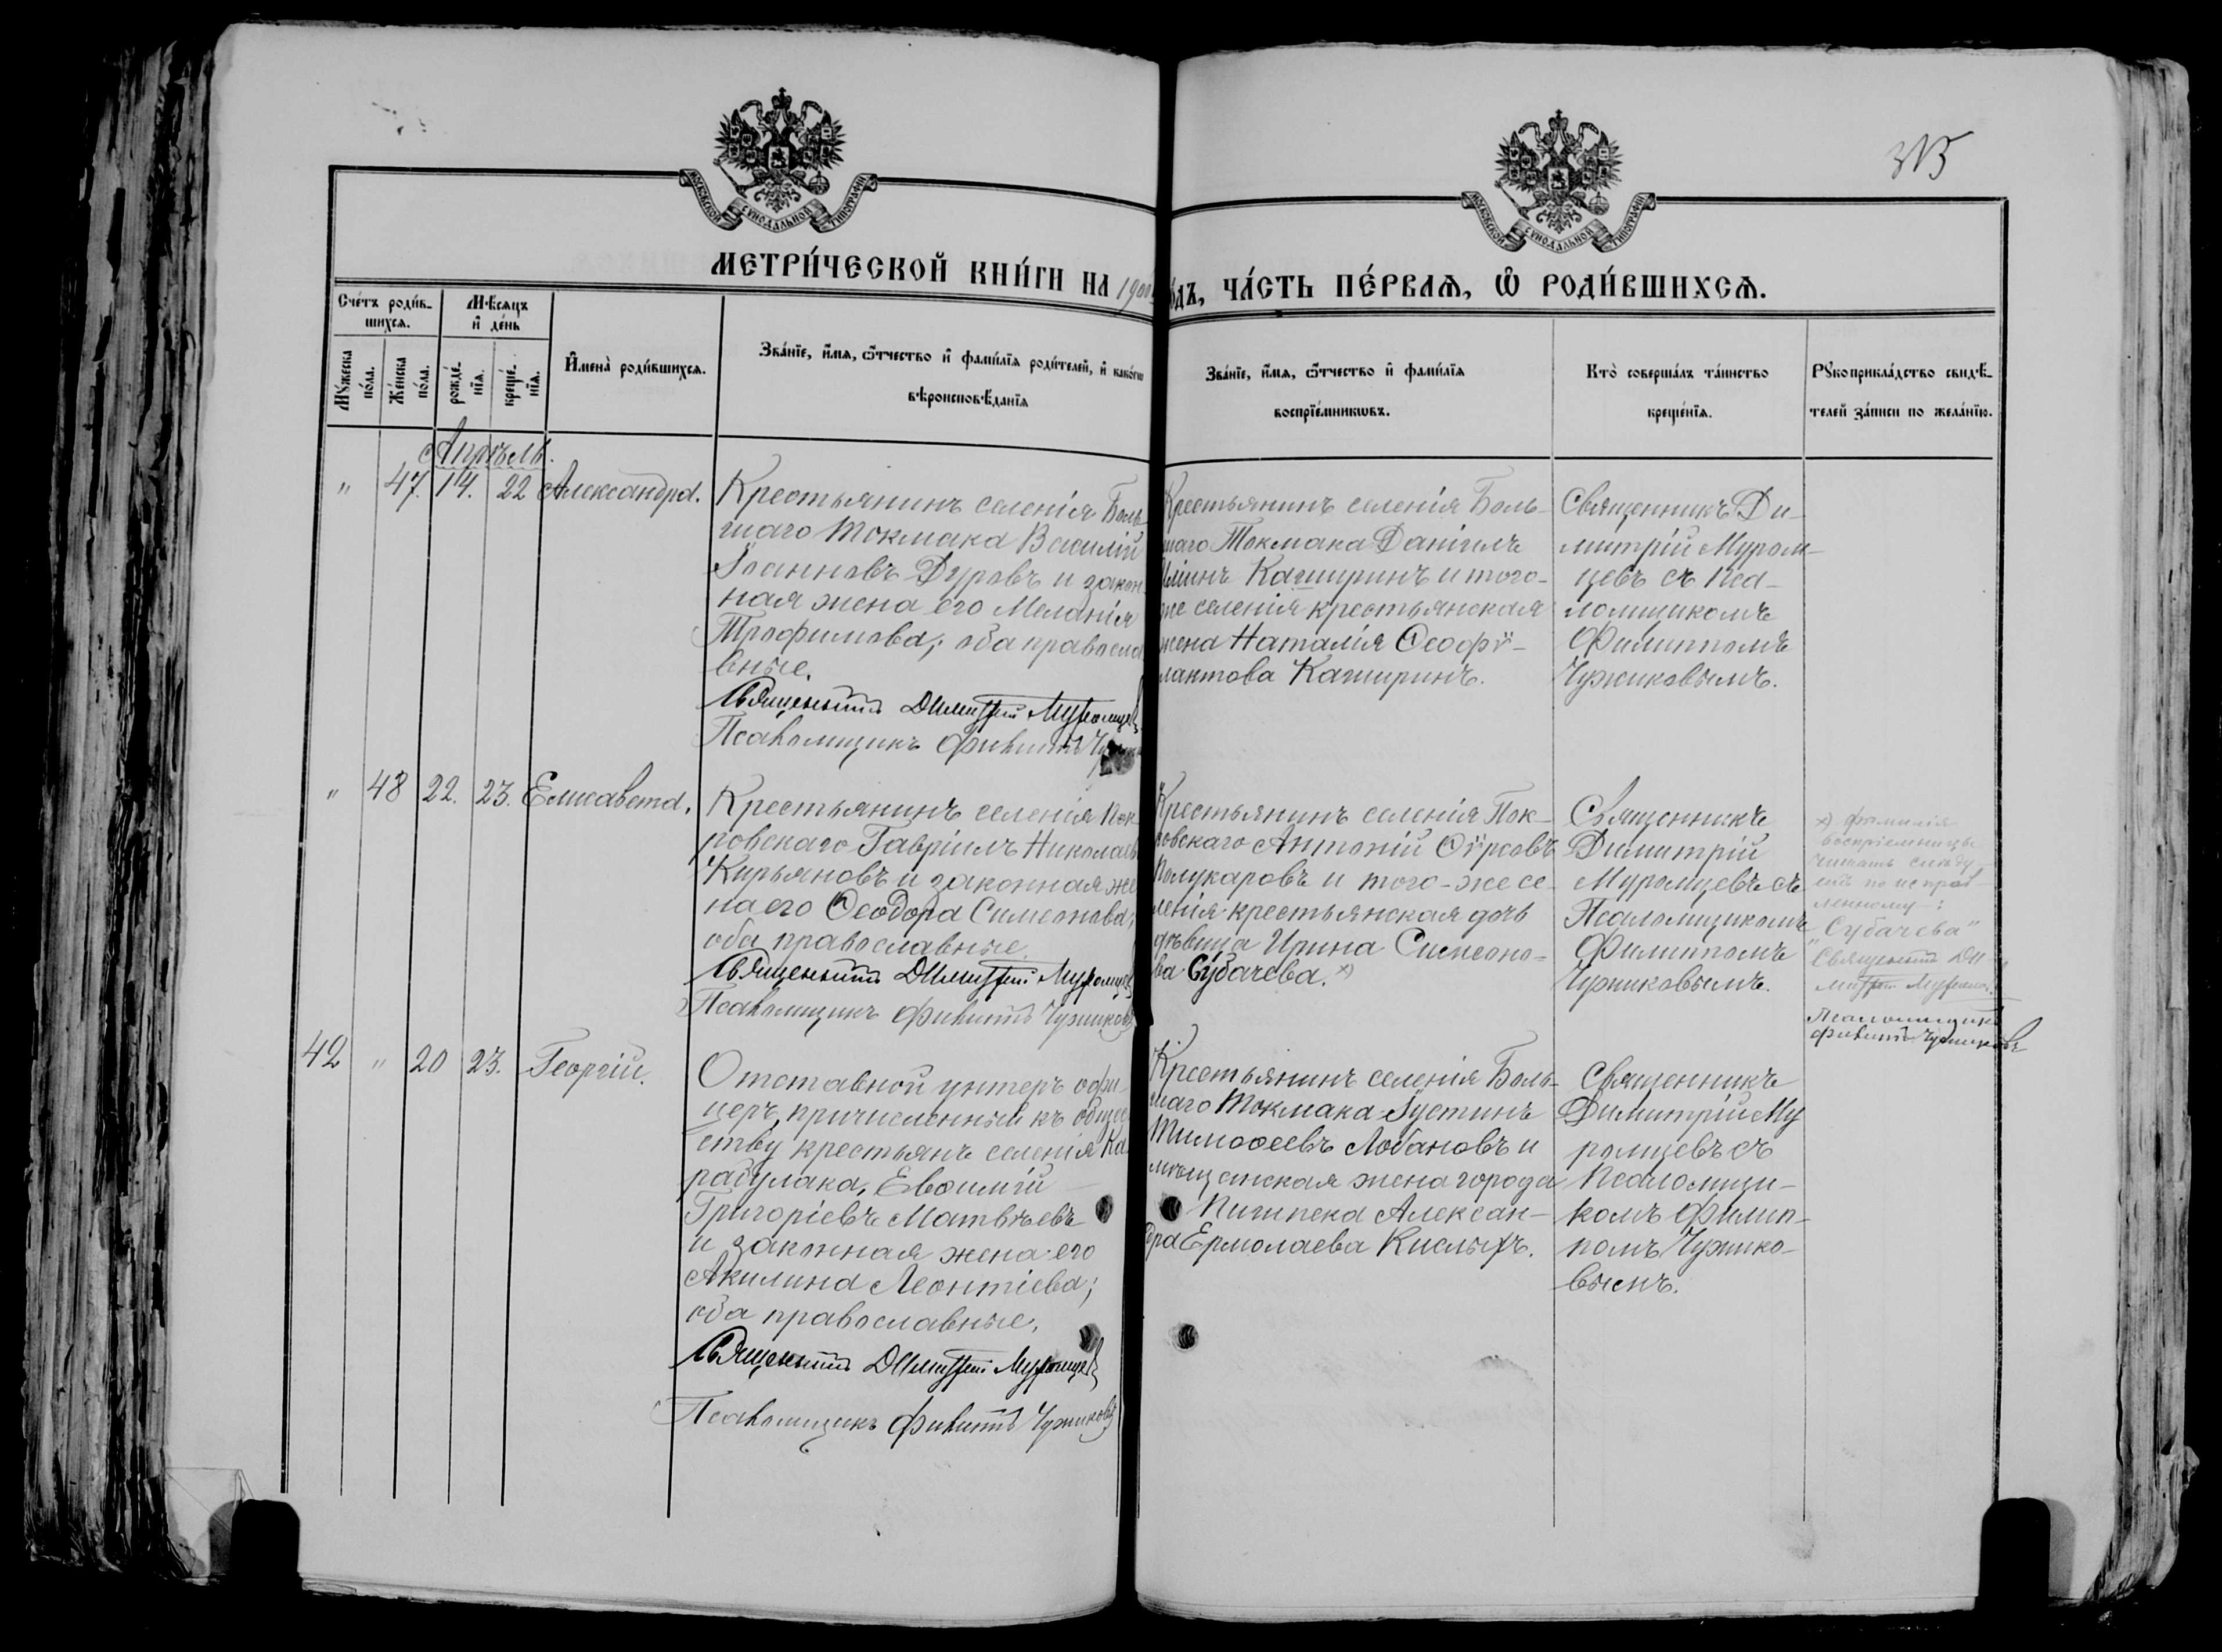 315
МОСКОВСКОЙ СѴНОДАЛЬНОЙ ТИПОГРАФІИ
МОСКОВСКОЙ СѴНОДАЛЬНОЙ ТИПОГРАФІИ
МЕТРИ́ЧЕСКОЙ КНИ́ГИ НА 190
дъ, ЧА́СТЬ ПЕ́РВАѦ, Ѡ҆ РОДИ́ВШИХСѦ.
Сче́тъ роди́в-
шихсѧ.
Мꙋ́жеска
по́ла.
Же́нска
по́ла.
Мѣсѧцъ
и҆ де́нь
рожде́-
нїѧ.
креще́-
нїѧ.
И҆мена̀ роди́вшихсѧ.
Зва́нїе, и҆́мѧ, ѻ҆́тчество и҆ фами́лїѧ роди́телей, и҆ како́гѡ
вѣроисповѣ́данїѧ
Зва́нїе, и҆́мѧ, ѻ҆́тчество и҆ фами́лїѧ
воспрїе́мникѡвъ.
Кто̀ соверша́лъ та́инство
креще́нїѧ.
Рꙋкоприкла́дство свидѣ́-
телей за́писи по жела́нїю.
Апрѣль.
" 47. 14. 22 Александра.
Крестьянинъ селенія Боль-
шаго Токмака Василій
Іоанновъ Дуровъ и закон
ная жена его Меланія
Трофимова; оба правосла
вные.
Священникъ Димитрій Муромцевъ
Псаломщикъ Филиппъ
Крестьянинъ селенія Боль-
шаго Токмака Даніилъ
Каширинъ и того-
же селенія крестьянская
жена Наталія Ѳеофи-
лактова Каширинъ.
Священникъ Ди-
митрій Муром-
цевъ съ Пса-
ломщикомъ
Филиппомъ
Чужиковымъ.
" 48 22. 23. Елисавета.
Крестьянинъ селенія Пок
ровскаго Гавріилъ Николаевъ
Кирьяновъ и законная же
на его Ѳеодора Симеонова;
оба православные.
Священникъ Димитрій Муромцевъ
Псаломщикъ Филиппъ Чужиковъ
Крестьянинъ селенія Пок-
ровскаго Антоній
Полукаровъ и того-же се-
ленія крестьянская дочь
дѣвица Ирина Симеоно-
ва Субачева. х)
Священникъ
Димитрій
Муромцевъ съ
Псаломщикомъ
Филиппомъ
Чужиковымъ.
х) Фамилія
воспріемницы
читать слѣду-
етъ по исправ-
ленному:
"Субачева"
Священникъ Ди
митрій Муромц.
Псаломщикъ
Филиппъ Чужиковъ
42 " 20 23. Георгій.
Отставной унтеръ офи-
церъ, причисленный къ общес
ству крестьянъ селенія Ка
ракулака, Евѳимій
Григоріевъ Матвѣевъ
и законная жена его
Акилина Леонтіева;
оба православные.
Священникъ Димитрій Муромцевъ
Псаломщикъ Филиппъ Чужиковъ
Крестьянинъ селенія Боль-
шаго Токмака Іустинъ
Тимоѳеевъ Лобановъ и
мѣщанская жена города
Пишпека Алексан-
дра Ермолаева Кислыхъ.
Священникъ
Димитрій Му
ромцевъ съ
Псаломщи-
комъ Филип-
помъ Чужико-
вымъ.